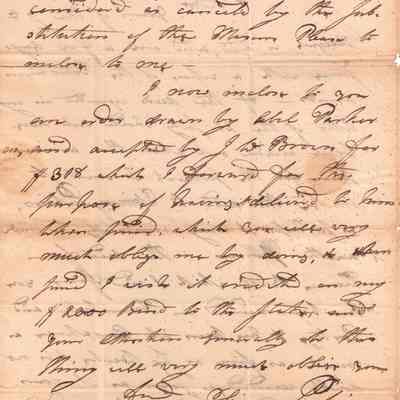 considered as canceld by the Sub-
stitution of the Mason Please to
inclose to me —
I now inclose to you
one order drawn by Abel Parker
and accepted by J W Brown for
$318 which I forward for the
purpose of having delivered to him
when paid, which you will very
much oblige me by doing, & when
paid I wish it credited on my
$2000 Bond to the State, and
your attention generally to this
thing will very much oblige your